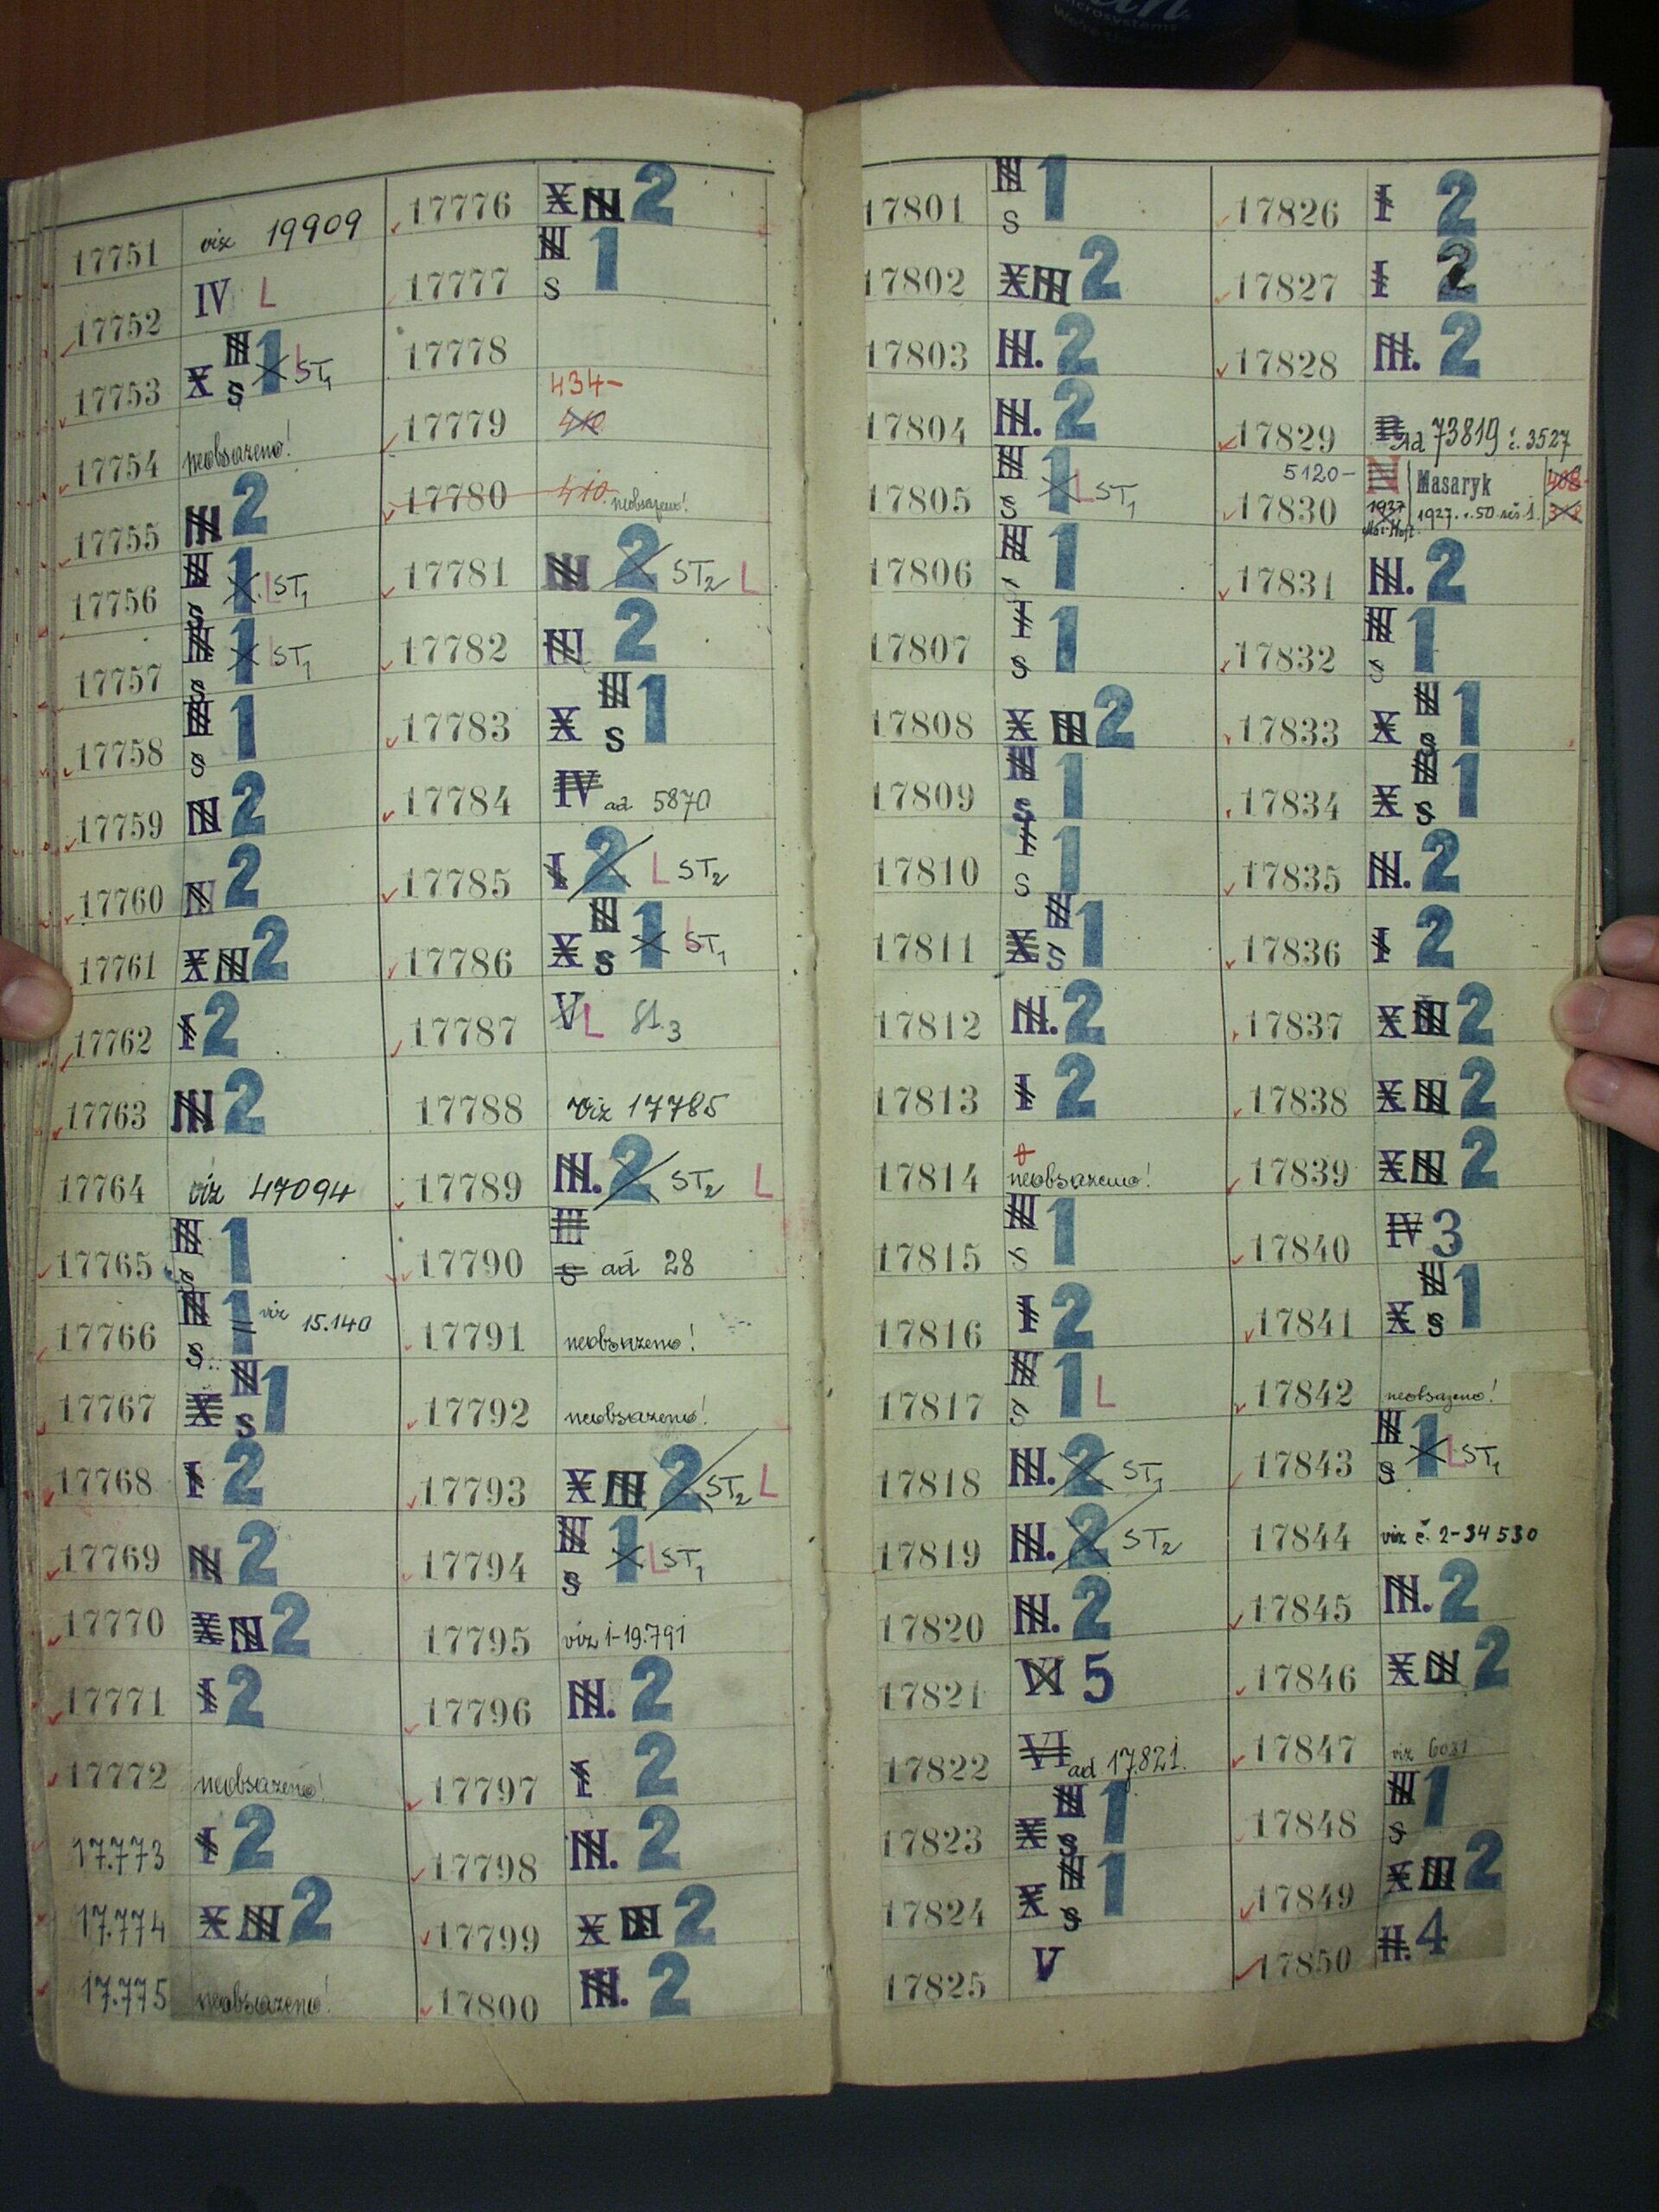 17751 viz 19909
17752 IV L
17753 X III S 1 L ST1
17754 neobsazeno!
17755 III 2
17756 III S 1 L ST1
17757 III S 1 L ST1
17758 III S 1
17759 III 2
17760 III 2
17761 X III 2
17762 I 2
17763 III 2
17764 viz 47094
17765 III S 1
17766 III S 1 viz 15.140
17767 X III S 1
17768 I 2
17769 III 2
17770 X III 2
17771 I 2
17772 neobsazeno!
17.773 I 2
17.774 X III 2
17.775 neobsazeno!
17776 X III 2
17777 III S 1
17778
17779 434- 410
17780 410 neobsazeno!
17781 III 2 ST2 L
17782 III 2
17783 X III S 1
17784 IV ad 5870
17785 I 2 L ST2
17786 X III S 1 L ST1
17787 V L 81.3
17788 viz 17785
17789 III. 2 ST2 L
17790 III S ad 28
17791 neobsazeno!
17792 neobsazeno!
17793 X III 2 ST2 L
17794 III S 1 L ST1
17795 viz 1-19.791
17796 III. 2
17797 I 2
17798 III. 2
17799 X III 2
17800 III. 2
17801 III S 1
17802 X III 2
17803 III. 2
17804 III. 2
17805 III S 1 L ST1
17806 III 1
17807 I S 1
17808 X III 2
17809 III S 1
17810 I S 1
17811 X III S 1
17812 III. 2
17813 I 2
17814 neobsazeno!
17815 III S 1
17816 I 2
17817 III S 1 L
17818 III. 2 ST1
17819 III. 2 ST2
17820 III. 2
17821 VI 5
17822 VI ad 17.821.
17823 X III S 1
17824 X III S 1
17825 V
17826 I 2
17827 I 2
17828 III. 2
17829 ad 73819 č. 3527
5120- N Masaryk 408-
17830 1927 1927. v. 50. seš. 1.
17831 III. 2
17832 III S 1
17833 X III S 1
17834 X III S 1
17835 III. 2
17836 I 2
17837 X III 2
17838 X III 2
17839 X III 2
17840 IV 3
17841 X III S 1
17842 neobsazeno!
17843 III S 1 L ST1
17844 viz č. 2-34530
17845 III. 2
17846 X III 2
17847 viz 6031
17848 III S 1
17849 X III 2
17850 II. 4